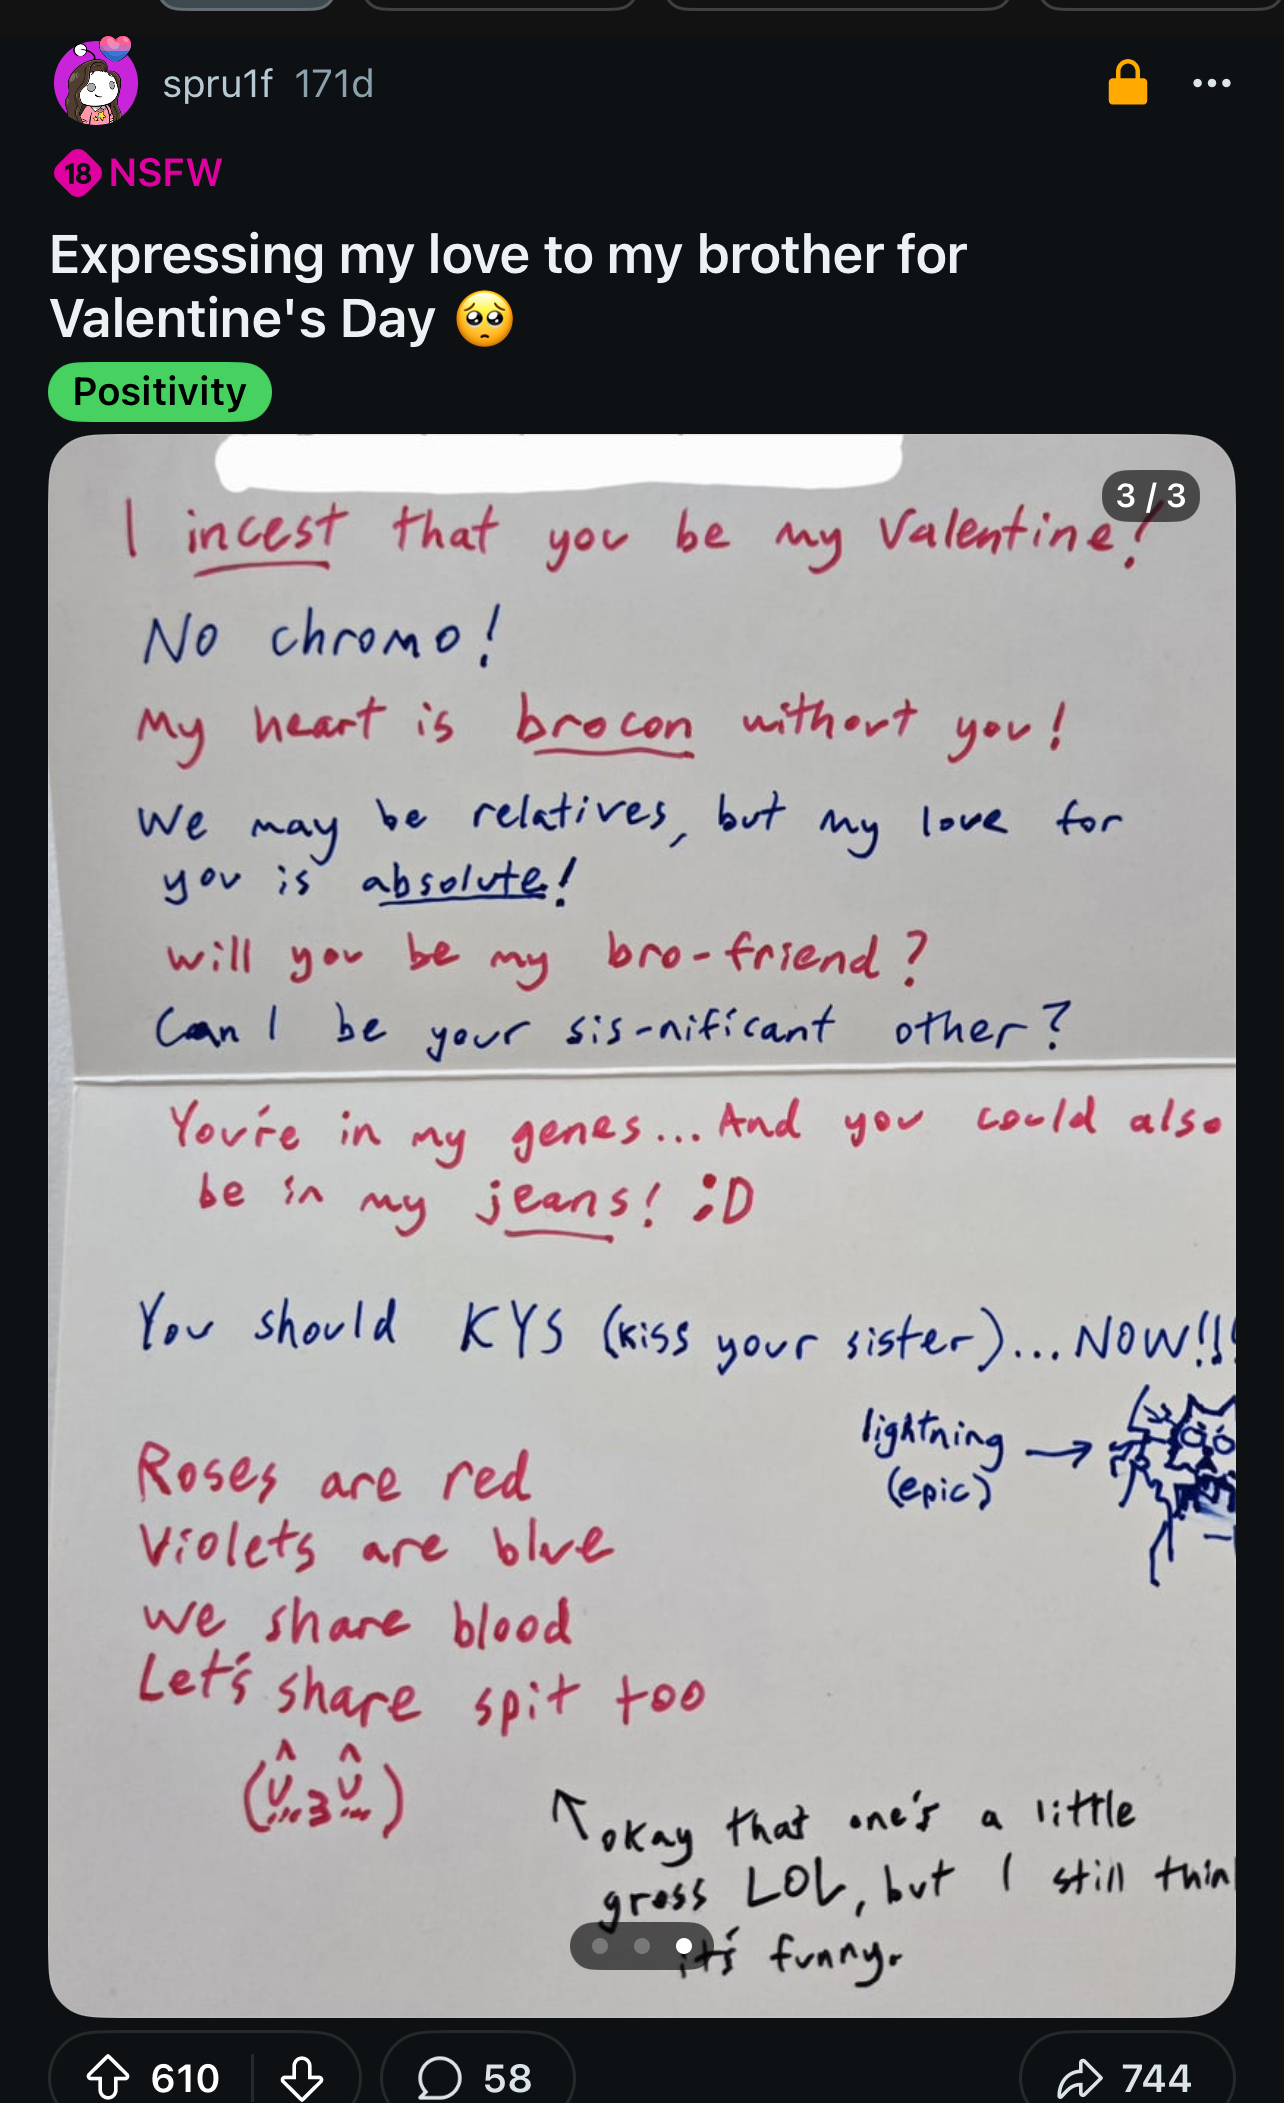 spru1f 171d
18 NSFW
Expressing my love to my brother for
Valentine's Day 🥺
Positivity
3 / 3
I incest that you be my Valentine!
No chromo!
My heart is brocon without you!
We may be relatives, but my love for
you is absolute!
Will you be my bro-friend?
Can I be your sis-nificant other?
You're in my genes... And you could also
be in my jeans! ;D
You should KYS (kiss your sister)... NOW!!!
lightning →
(epic)
Roses are red
Violets are blue
We share blood
Let's share spit too
okay that one's a little
gross LOL, but I still thin
it's funny.
610
58
744